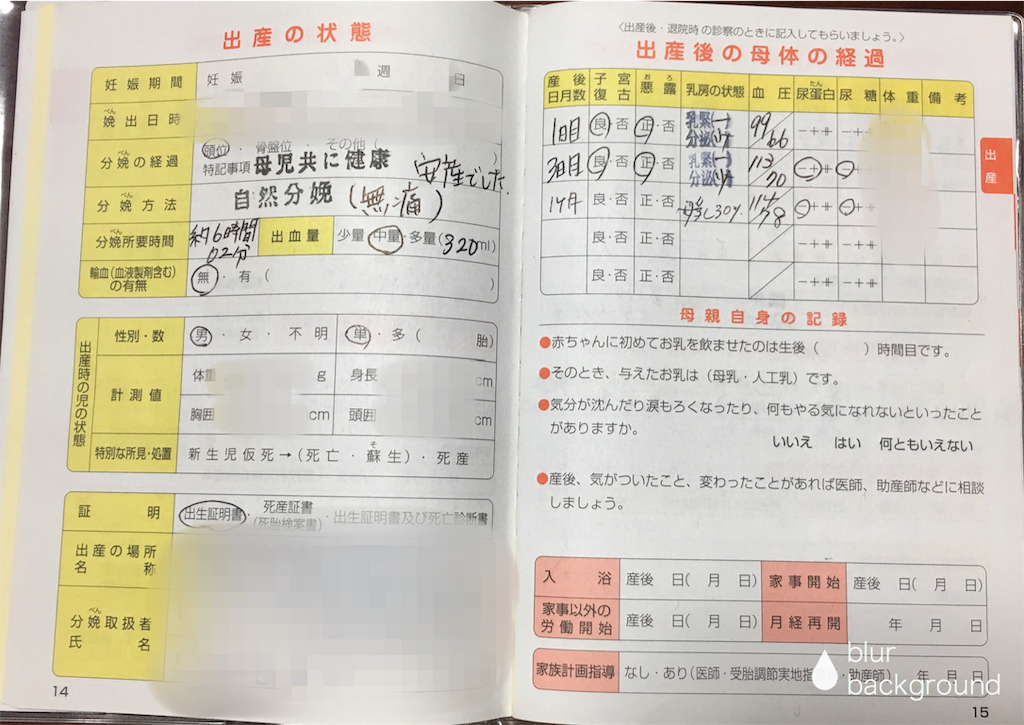 出産の状態
妊娠期間 妊娠 週 日
娩出日時
分娩の経過 頭位・骨盤位・その他(
特記事項 母児共に健康 )
安産でした.
分娩方法 自然分娩(無痛)
分娩所要時間 約6時間02分 出血量 少量・中量・多量(320ml)
輸血(血液製剤含む)の有無 無・有( )
出産時の児の状態
性別・数 男・女・不明 単・多( 胎)
計測値 体重 g 身長 cm
胸囲 cm 頭囲 cm
特別な所見・処置 新生児仮死→(死亡・蘇生)・死産
証明 出生証明書・死産証書(死胎検案書)・出生証明書及び死亡診断書
出産の場所
名称
分娩取扱者
氏名
14
〈出産後・退院時の診察のときに記入してもらいましょう。〉
出産後の母体の経過
産後日月数 子宮復古 悪露 乳房の状態 血圧 尿蛋白 尿糖 体重 備考
1日目 良・否 正・否 乳緊(-) 分泌 99/66 -+⧺ -+⧺
3日目 良・否 正・否 乳緊(-) 分泌 113/70 -+⧺ -+⧺
1ヶ月 良・否 正・否 114/78 -+⧺ -+⧺
良・否 正・否 -+⧺ -+⧺
良・否 正・否 -+⧺ -+⧺
出産
母親自身の記録
●赤ちゃんに初めてお乳を飲ませたのは生後( )時間目です。
●そのとき、与えたお乳は(母乳・人工乳)です。
●気分が沈んだり涙もろくなったり、何もやる気になれないといったこと
がありますか。
いいえ はい 何ともいえない
●産後、気がついたこと、変わったことがあれば医師、助産師などに相談
しましょう。
入浴 産後 日( 月 日) 家事開始 産後 日( 月 日)
家事以外の労働開始 産後 日( 月 日) 月経再開 年 月 日
家族計画指導 なし・あり(医師・受胎調節実地指 ・助産師) 年 月 日
blur
background
15